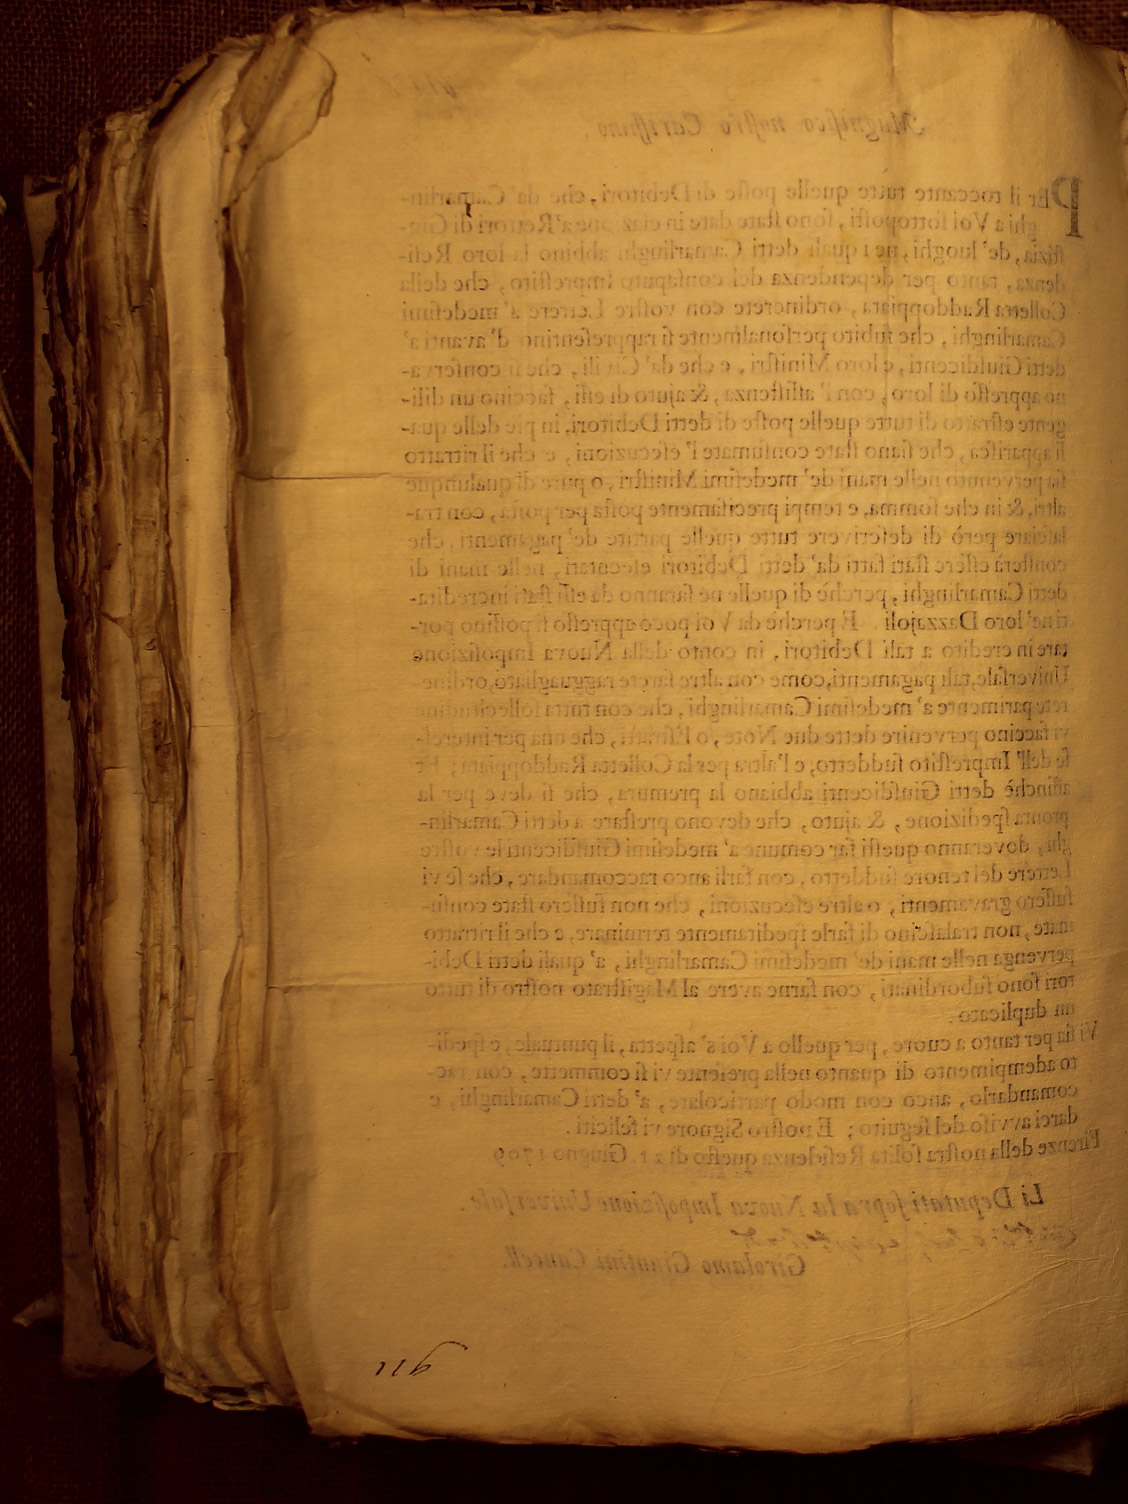 Magnifico nostro Carissimo.
PEr il roccante tutte quelle poste di Debitori, che da' Camarlin-
ghi a Voi sottoposti, sono state date in a' Rettori di Giu-
stizia, de' luoghi, ne i quali detti Camarlinghi abbino la loro Resi-
denza, tanto per dependenza del consaputo Imprestito, che della
Colletta Raddoppiata, ordinerete con vostre Lettere a' medesimi
Camarlinghi, che subito personalmente si rappresentino d'avanti a'
detti Giusdicenti, e loro Ministri, e che da' Civili, che si conserva-
no appresso di loro, con l' assistenza, & ajuto di essi, faccino un dili-
gente estratto di tutte quelle poste di detti Debitori, in piè delle qua-
li apparisca, che siano state consumate l' esecuzioni, e che il ritratto
sia pervenuto nelle mani de' medesimi Ministri, o pure di qualunque
altri, & in che somma, e tempi precisamente posta per posta, con tra-
lasciare però di descrivere tutte quelle partite de' pagamenti, che
consterà essere stati fatti da' detti Debitori esecutati, nelle mani di
detti Camarlinghi, perchè di quelle ne saranno da essi stati incredita-
ti ne' loro Dazzajoli. E perchè da Voi poco appresso si possino por-
tare in credito a tali Debitori, in conto della Nuova Imposizione
Universale, tali pagamenti, come con altre sarete ragguagliato, ordine-
rete parimente a' medesimi Camarlinghi, che con tutta sollecitudine
vi faccino pervenire dette due Note, o Estratti, che una per interes-
se dell' Imprestito suddetto, e l'altra per la Colletta Raddoppiata; Et
affinchè detti Giusdicenti abbiano la premura, che si deve per la
pronta spedizione, & ajuto, che devono prestare a detti Camarlin-
ghi, doveranno questi far comune a' medesimi Giusdicenti le vostre
Lettere del tenore suddetto, con farli anco raccomandare, che se vi
fussero gravamenti, o altre esecuzioni, che non fussero state consu-
mate, non tralascino di farle speditamente terminare, e che il ritratto
pervenga nelle mani de' medesimi Camarlinghi, a' quali detti Debi-
tori sono subordinati, con farne avere al Magistrato nostro di tutto
un duplicato.
Vi sia per tanto a cuore, per quello a Voi s' aspetta, il puntuale, e spedi-
to adempimento di quanto nella presente vi si commette, con rac-
comandarlo, anco con modo particolare, a' detti Camarlinghi, e
darci avviso del seguito; E nostro Signore vi feliciti.
Firenze della nostra solita Residenza questo dì 21. Giugno 1709
Li Deputati sopra la Nuova Imposizione Universale.
Girolamo Giuntini Cancell.
116